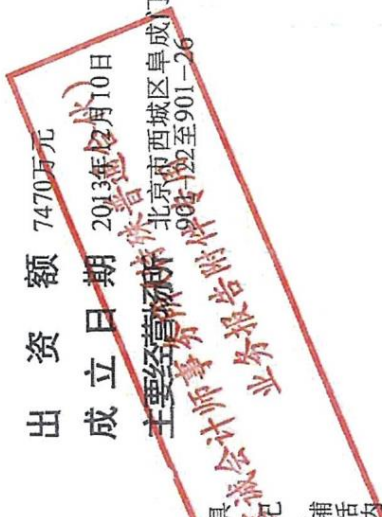 出资额 7470万元
成立日期 2013年12月10日
主要经营场所 北京市西城区阜成门
901-22至901-26
诚会计师事务所（特殊普通合伙）
业务报告附件专用